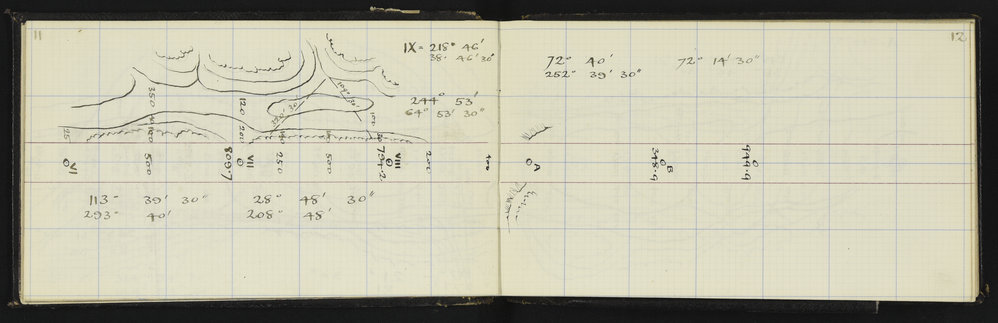 11
IX = 218° 46'
38° 46' 30"
244° 53'
64° 53' 30"
350
120
200
100
25
VI
500
809.7
VII
250
500
734.2
VIII
200
400
113° 39' 30"
293° 40'
28° 48' 30"
208° 48'
12
72° 40'
252° 39' 30"
72° 14' 30"
A
348.9
B
449.9